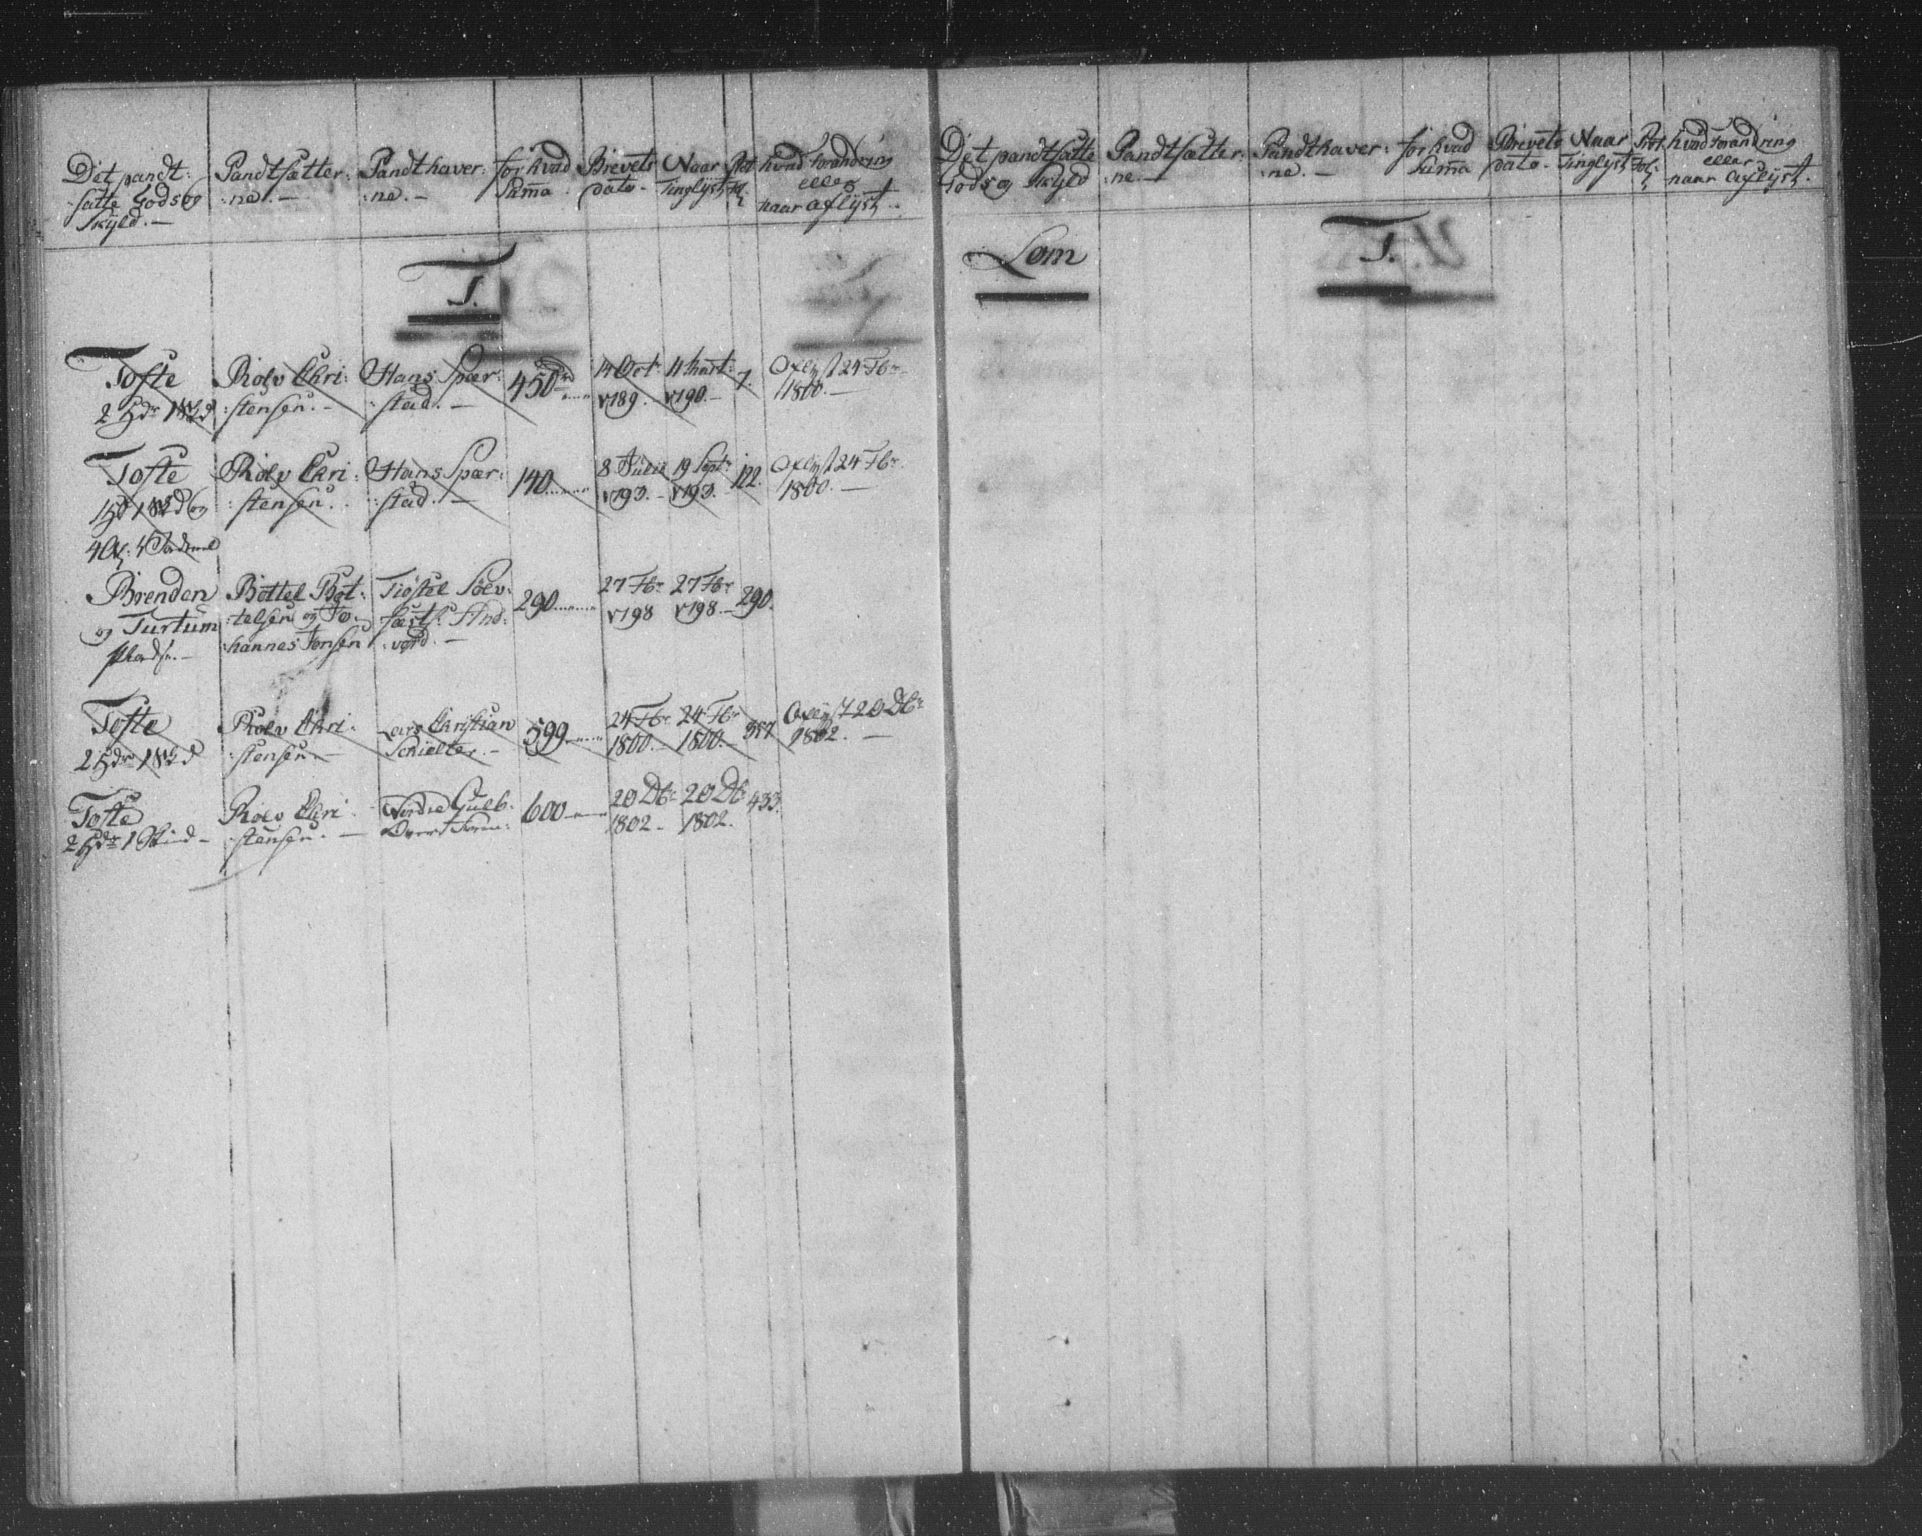 Det pandt:
satte Godsog
Skyld. —
Pandtsætter:
:ne. —
Pandthaver:
:ne. —
for hvad
Suma.
Brevets
Dato.
Naar
Tinglyst
Prot
Fol:
hvad Forandring
eller
naar aflyst.
T.
Tofte
2 Hdr 1
Rolv Chri:
:stensen. —
Hans Spær:
:stad. —
450
14 Oct
1789. —
11 Mart:
1790. —
7.
Aflyst 24 Fbr.
1800. —
Tofte
Rolv Chri:
:stensen.
Hans Spær:
:stad. —
140
8 Julii
1793. —
19 Sept:
1793. —
122.
Aflyst 24 Fbr.
1800. —
Brenden
og Turtum
Bottel Bot:
:telsen og Jo:
:hannes Jonsen
Tiøstel Sølv:
290
27 Fbr
1798
27 Fbr
1798. —
290.
Tofte
2 Hdr 1
Rolv Chri:
:stensen —
Lars Christian
599
24 Fbr
1800. —
24 Fbr
1800. —
357
Aflyst 20 Dbr
1802. —
Tofte
2 Hdr 1 Skind —
Rolv Chri:
:stensen. —
600
20 Dbr
1802. —
20 Dbr
1802.
433.
Det pandtsatte
Godsog Skyld
Pandtsætter:
:ne. —
Pandthaver:
:ne. —
for hvad
Suma
Brevets
Dato —
Naar
Tinglyst
Prot
Fol:
hvad Forandring
eller
naar aflyst.
Lom
T.